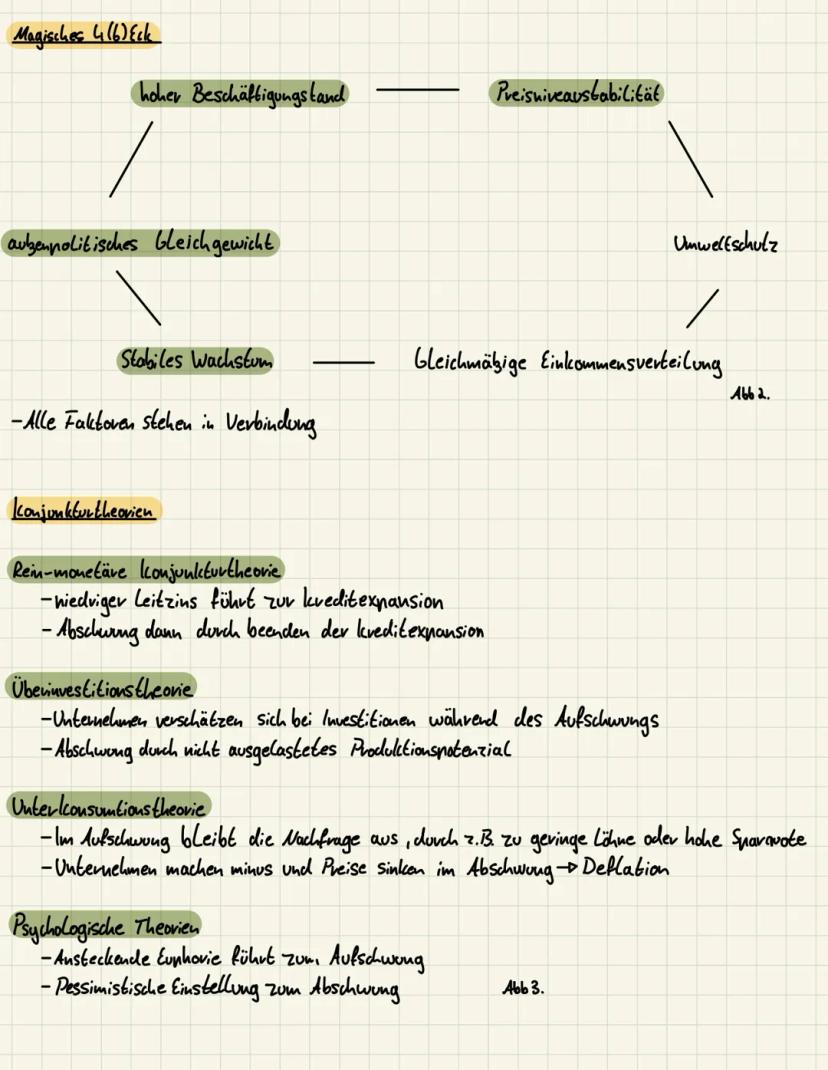 Magisches 4(6)Eck
hoher Beschäftigungstand
Preisniveaustabilität
außenpolitisches Gleichgewicht
Umweltschutz
Stabiles Wachstum
Gleichmäßige Einkommensverteilung
Abb 2.
-Alle Faktoren stehen in Verbindung
Konjunkturtheorien
Rein-monetäre Konjunkturtheorie
-niedriger Leitzins führt zur Kreditexpansion
-Abschwung dann durch beenden der Kreditexpansion
Überinvestitionstheorie
-Unternehmen verschätzen sich bei Investitionen während des Aufschwungs
-Abschwung durch nicht ausgelastetes Produktionspotenzial
Unterkonsumtionstheorie
-Im Aufschwung bleibt die Nachfrage aus, durch z.B. zu geringe Löhne oder hohe Sparquote
-Unternehmen machen minus und Preise sinken im Abschwung → Deflation
Psychologische Theorien
-Ansteckende Euphorie führt zum Aufschwung
-Pessimistische Einstellung zum Abschwung
Abb 3.